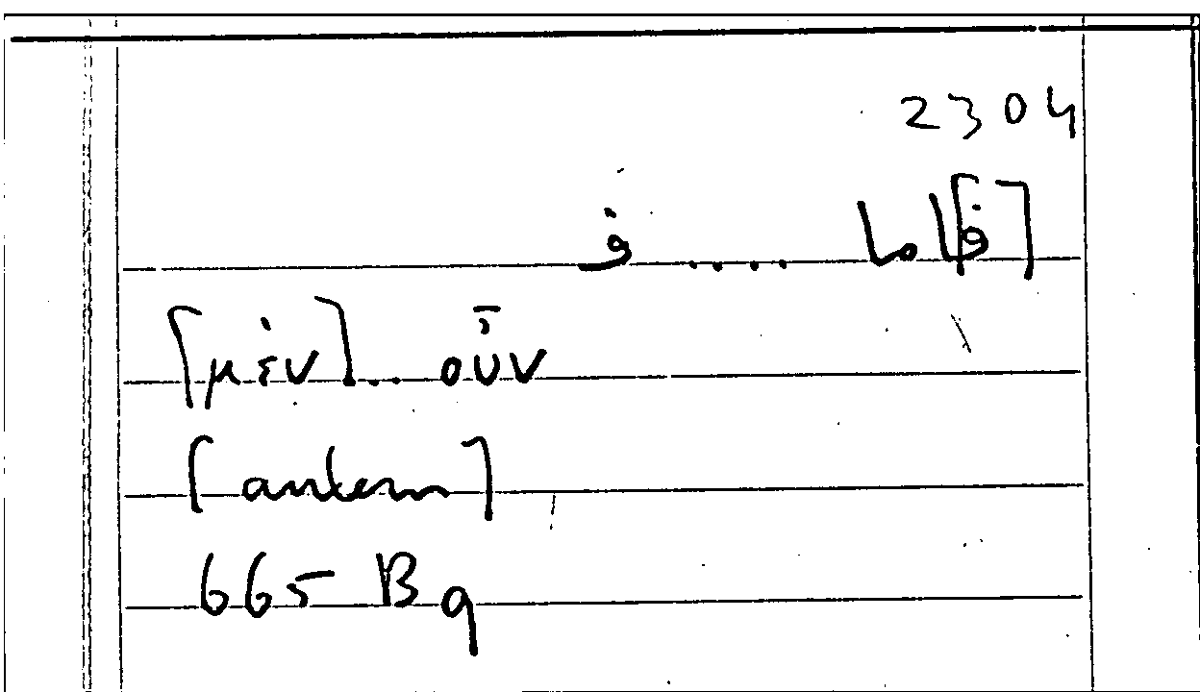 2304
[ف]اما .... ف
[μὲν]... οὖν
[autem]
665 B9